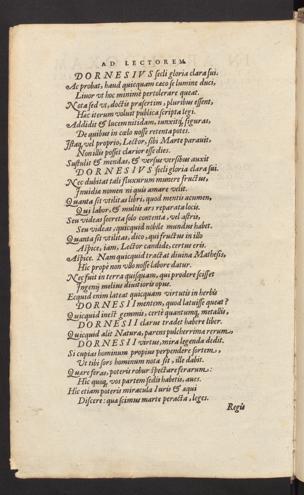 AD LECTOREM.
DORNESIVS secli gloria clara sui.
Ac probat, haud quicquam caco se lumine duci,
Liuor vt hoc minimè pertolerare queat.
Nota sed vt, doctis praesertim, pluribus essent,
Hac iterum voluit publica scripta legi.
Addidit & lucem nuisdam, iunxitq; figuras,
De quibus in coelo nosse retenta potes.
Istaq; vel proprio, Lector, sibi Marte parauit,
Non illis posset clarior esse dies.
Sustulit & mendas, & versus versibus auxit
DORNESIVS secli gloria clara sui.
Nec dubitat tali fluxurum munere fructus,
Inuidia nomen ni quis amare velit.
Quanta sit vtilitas libri, quod mentis acumen,
Qui labor, & multis ars reparata locis.
Seu videas secreta solo contenta, vel astris,
Seu videas, quicquid nobile mundus habet.
Quanta sit vtilitas, dico, qui fructus in illo
Aspice, iam, Lector candide, certus eris.
Aspice. Nam quicquid tractat diuina Mathesis,
Hic propè non vllo nosse labore datur.
Nec fuit in terra quisquam, qui prodere scisset
Ingenij melius diuitioris opus.
Ecquid enim lateat quicquam virtutis in herbis
DORNESII mentem, quod latuisse queat?
Quicquid inest gemmis, certè quantumq; metallis,
DORNESII clarus tradet habere liber.
Quicquid alit Natura, parens pulcherrima rerum,
DORNESII virtus, mira legenda dedit.
Si cupias hominum propius perpendere sortem,
Vt tibi sors hominum nota sit, ille dabit.
Quare feras, poteris robur spectare ferarum:
Hic quoq, vos partem sedis habetis, aues.
Hic etiam poteris miracula Iuris & aqui
Discere: qua scimus marte peracta, leges.
Regis